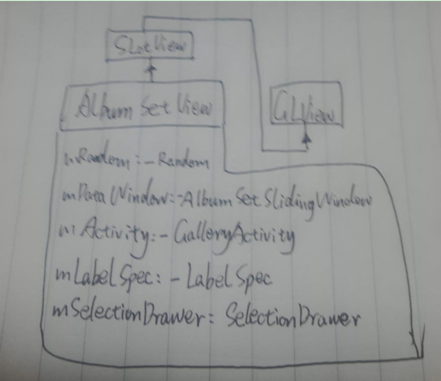 SlotView
AlbumSetView
GLView
mRandom:-Random
mDataWindow:-AlbumSetSlidingWindow
mActivity:-GalleryActivity
mLabelSpec:-LabelSpec
mSelectionDrawer: SelectionDrawer